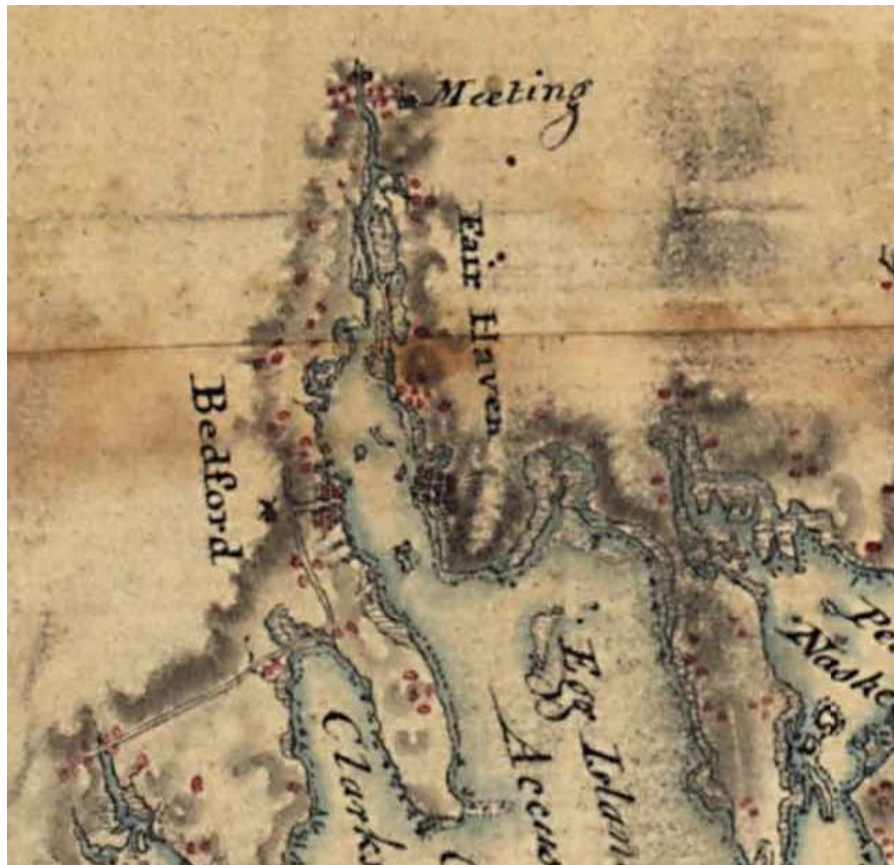 Meeting
Fair Haven
Bedford
Egg Islan
Accus
Clarks
Naske